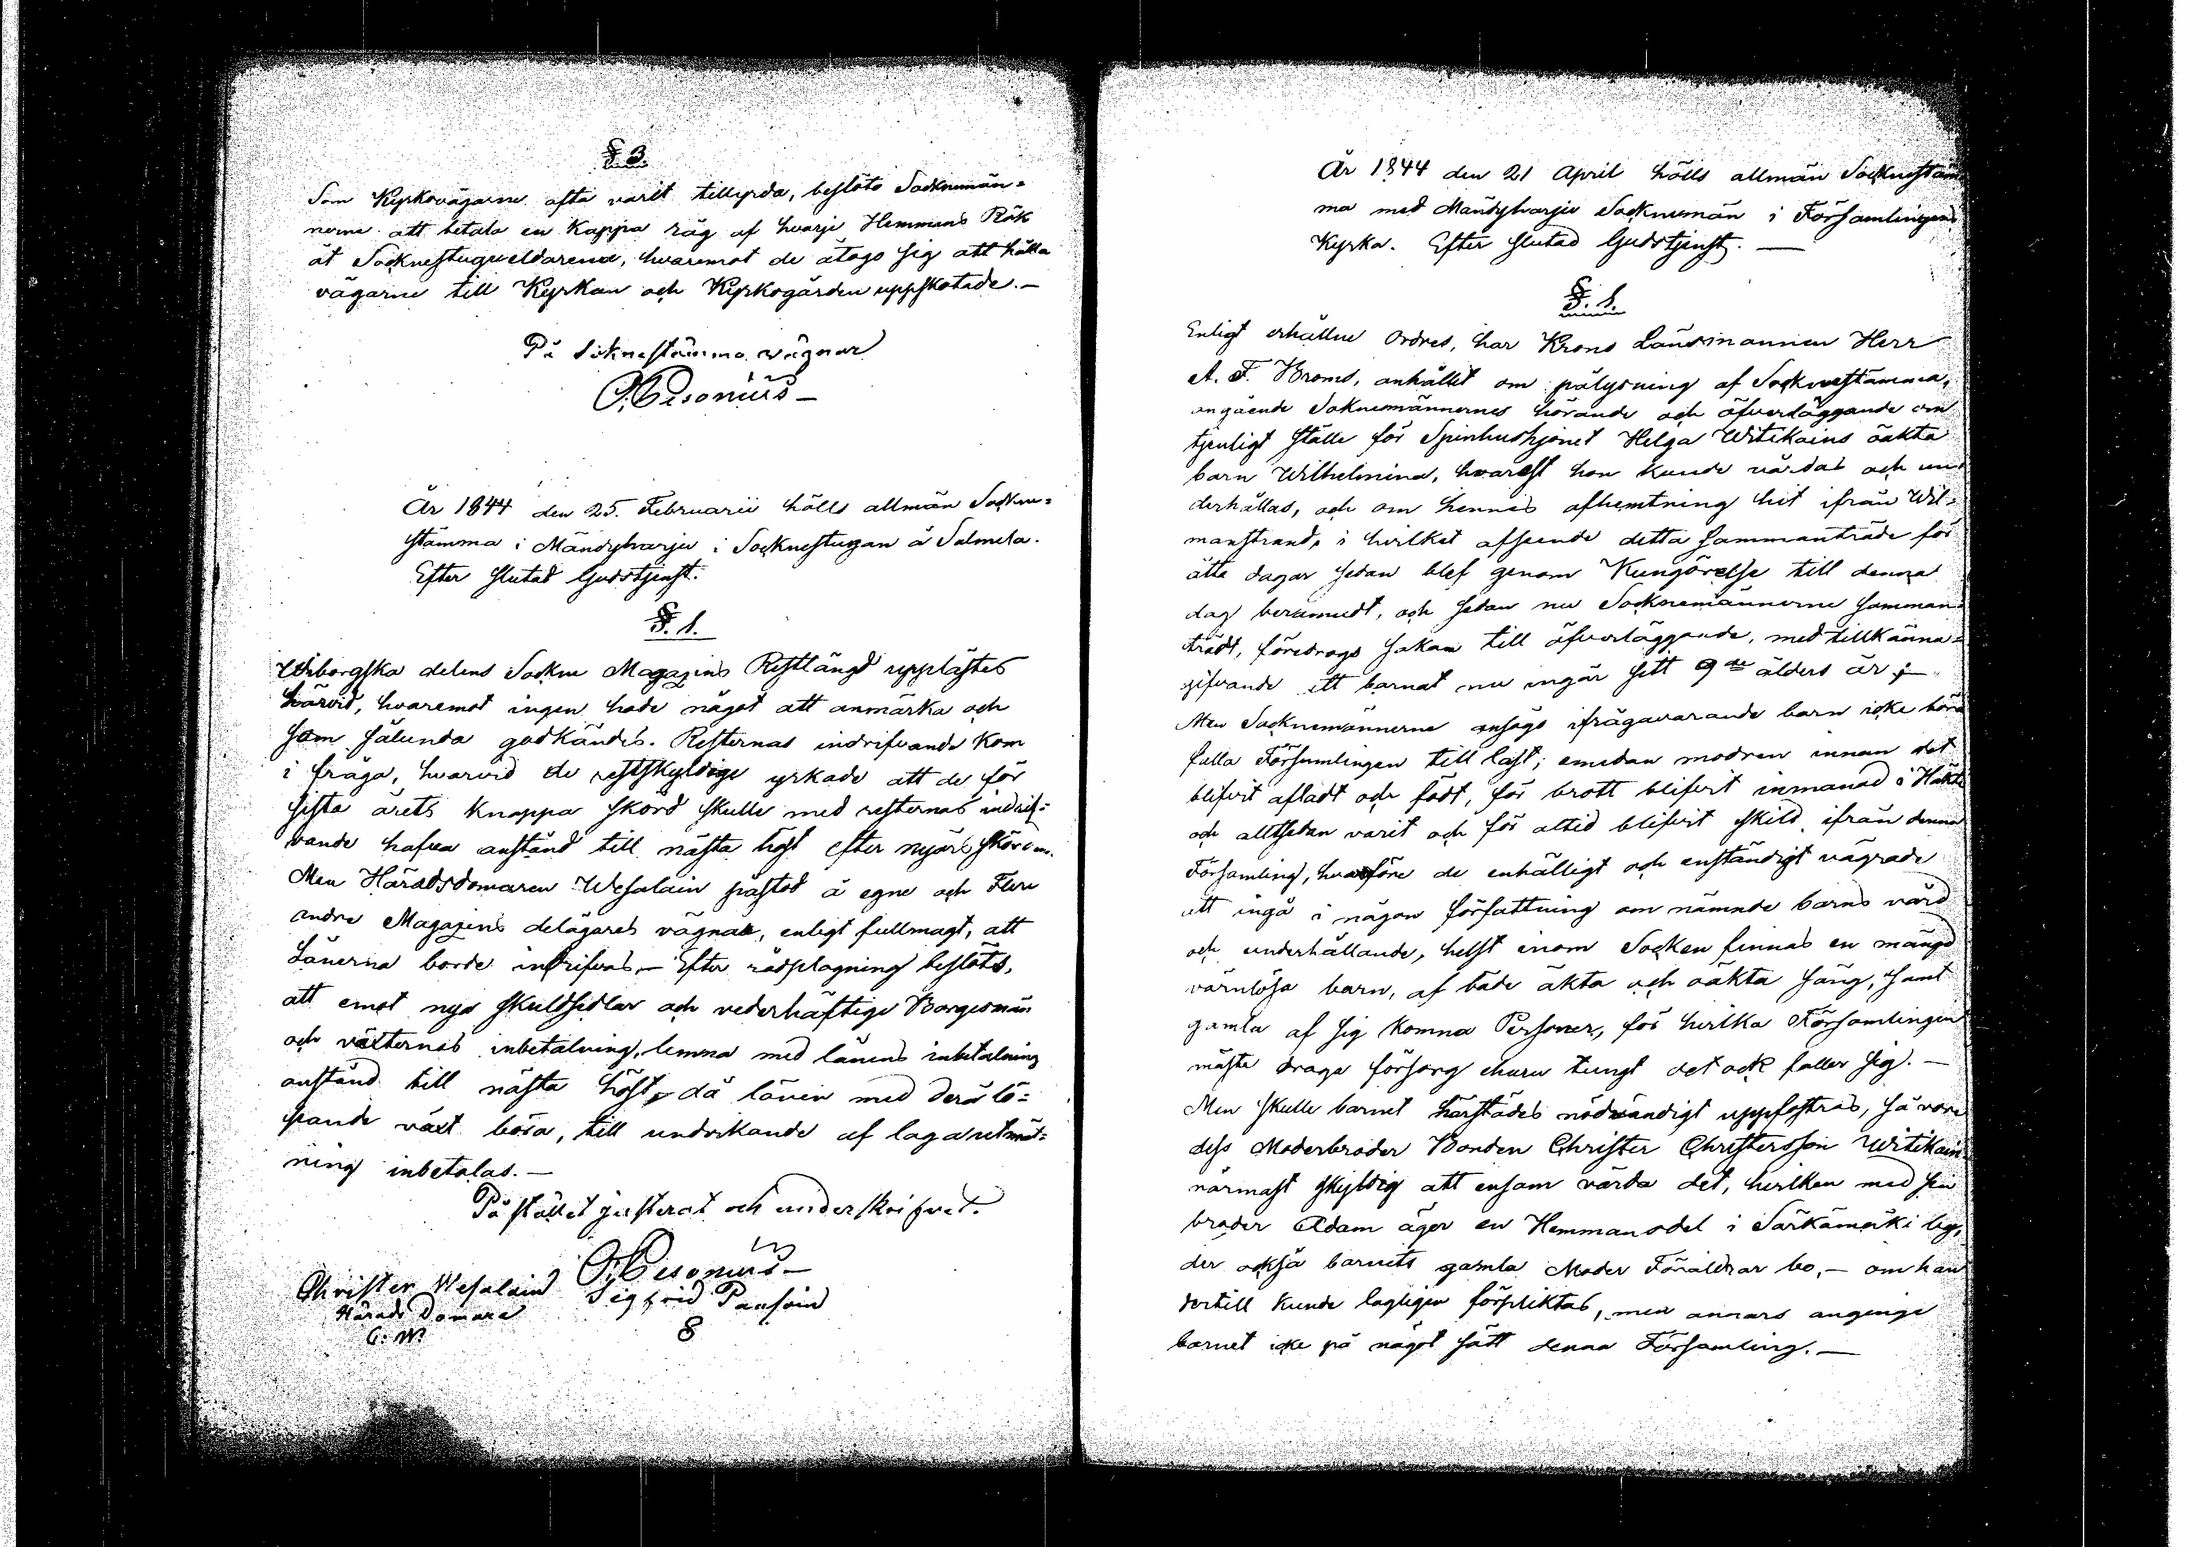 § 3.
Som Kyrkovägarne ofta varit tillyrda, beslöto Socknemän=
nerne att betala en Kappa råg af hvarje Hemmans Rök
åt Socknestugueldaren, hvaremot de åtogo sig att hålla
vägarne till Kyrkan och Kyrkogården uppskotade.—
På Soknestämmo vägnar
År 1844 den 25. Februarii hölls allmän Sockne=
stämma i Mändyharju i Socknestugan å Salmela.
Efter slutad Gudstjenst.
§. 1.
Wiborgska delens Sockne Magazins Restlängd upplästes
härvid, hvaremot ingen hade något att anmärka och
som sålunda godkändes. Resternas indrifvande kom
i fråga, hvarvid de restskyldige yrkade att de för
sista årets knappa skörd skulle med resternas indrif=
vande hafva anstånd till nästa höst efter nyårs skörden.
Men Häradsdomaren Wesalain påstod å egne och Flere
andre Magazins delägares vägnar, enligt fullmagt, att
Lånerna borde indrifvas.— Efter rådplagning beslöts,
att emot nya skuldsedlar och vederhäftige Borgesmän
och växternas inbetalning, lemna med lånens inbetalning
anstånd till nästa höst, då lånen med derå lö=
pande växt böra, till undvikande af laga utmät=
ning inbetalas.—
På stället justerat och underskrifvet.
Christer Wesalain Sigfrid Pausain
Härads Domare
C. W.
År 1844 den 21 April hölls allmän Socknestäm
ma med Mändyharju Socknemän i Församlingens
Kyrka. Efter slutad Gudstjenst.—
§. 1.
Enligt erhållne Ordres, har Krono Länsmannen Herr
A. F. Broms, anhållit om pålysning af Socknestämma,
angående Soknemännernes hörande och öfverläggande om
tjenligt ställe för Spinhushjonet Helga Witikains oäkta
barn Wilhelmina, hvarest hon kunde vårdas och un
derhållas, och om hennes afhemtning hit ifrån Wil=
manstrand, i hvilket afseende detta sammanträde för
åtta dagar sedan blef genom Kungörelse till denna
dag beramadt, och sedan nu Socknemännerne samman
trädt, föredrogs saken till öfverläggande, med tillkänna=
gifvande att barnet nu ingår sitt 9de ålders år;—
Men Socknemännerne ansågo ifrågavarande barn icke böra
falla Församlingen till last; emedan modren innan det
blifvit afladt och födt, för brott blifvit inmanad i Häkte
och alltsedan varit och för altid blifvit skild ifrån denna
Församling, hvarföre de enhälligt och enständigt vägrade
att ingå i någon författning om nämnde barns vård
och underhållande, helst inom Socken finnas en mängd
värnlösa barn, af både äkta och oäkta säng, samt
gamla af sig komna Personer, för hvilka Församlingen
måste draga försorg ehuru tungt det ock faller sig.—
Men skulle barnet härstädes nödvändigt uppfostras, så vore
dess Moderbroder Bonden Christer Christersson Witikain
närmast skyldig att ensam vårda det, hvilken med sin
broder Adam äger en Hemmansdel i Särkämäki by,
der också barnets gamla Moder Föräldrar bo,— om han
dertill kunde lagligen förpliktas, men annars anginge
barnet icke på något sätt denna Församling.—